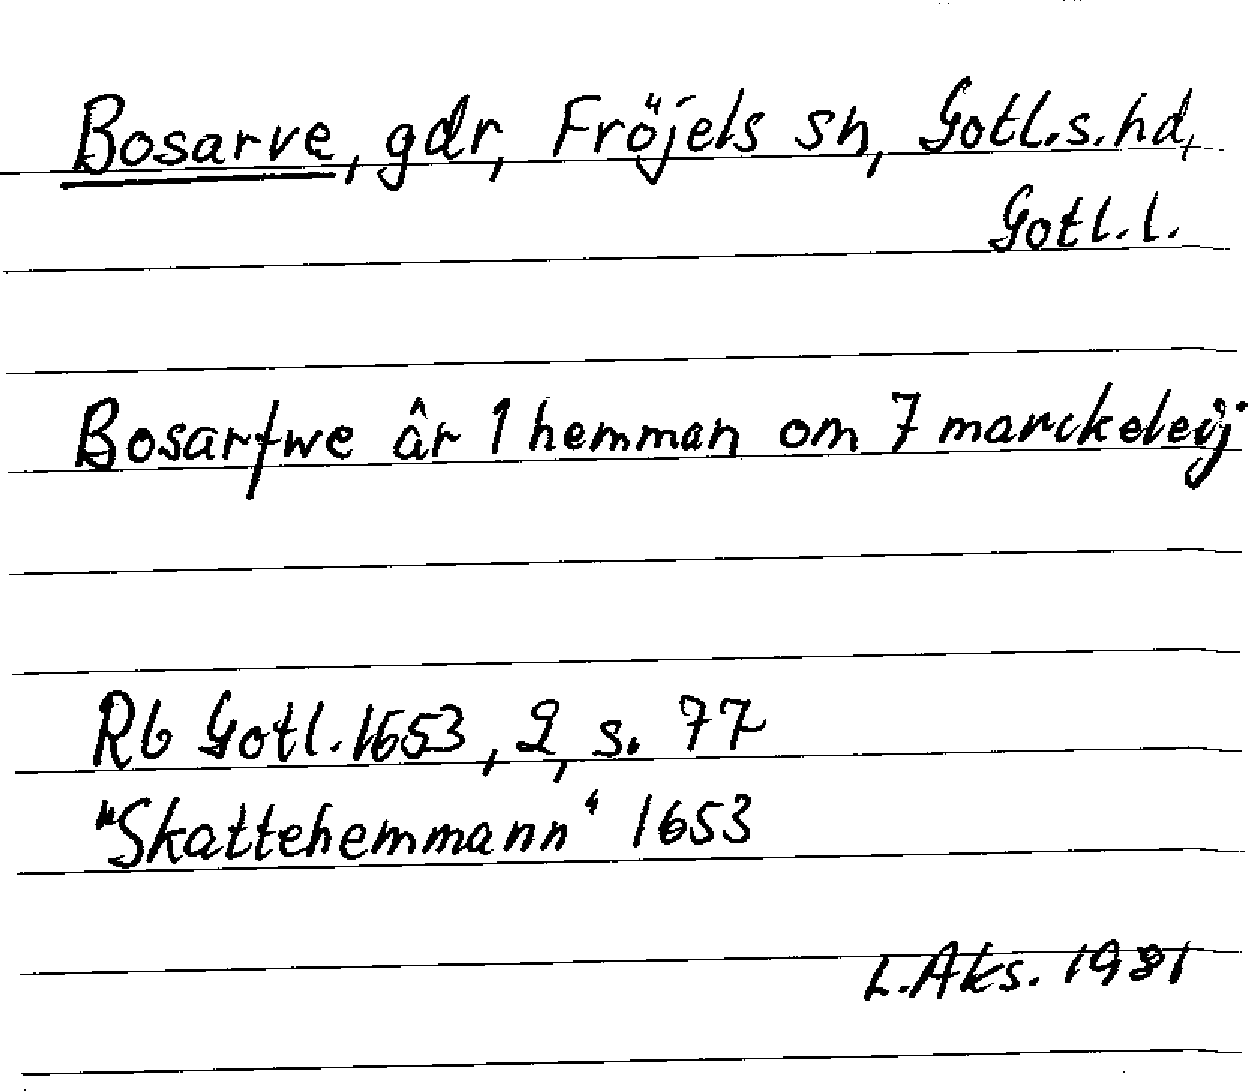 Bosarve, gdr, Fröjels sn, Gotl.s.hd,
Gotl.l.
Bosarfwe âr 1 hemman om 7 marckeleij
Rb Gotl.1653, 2, s. 77
"Skattehemmann" 1653
L.Aks. 1981